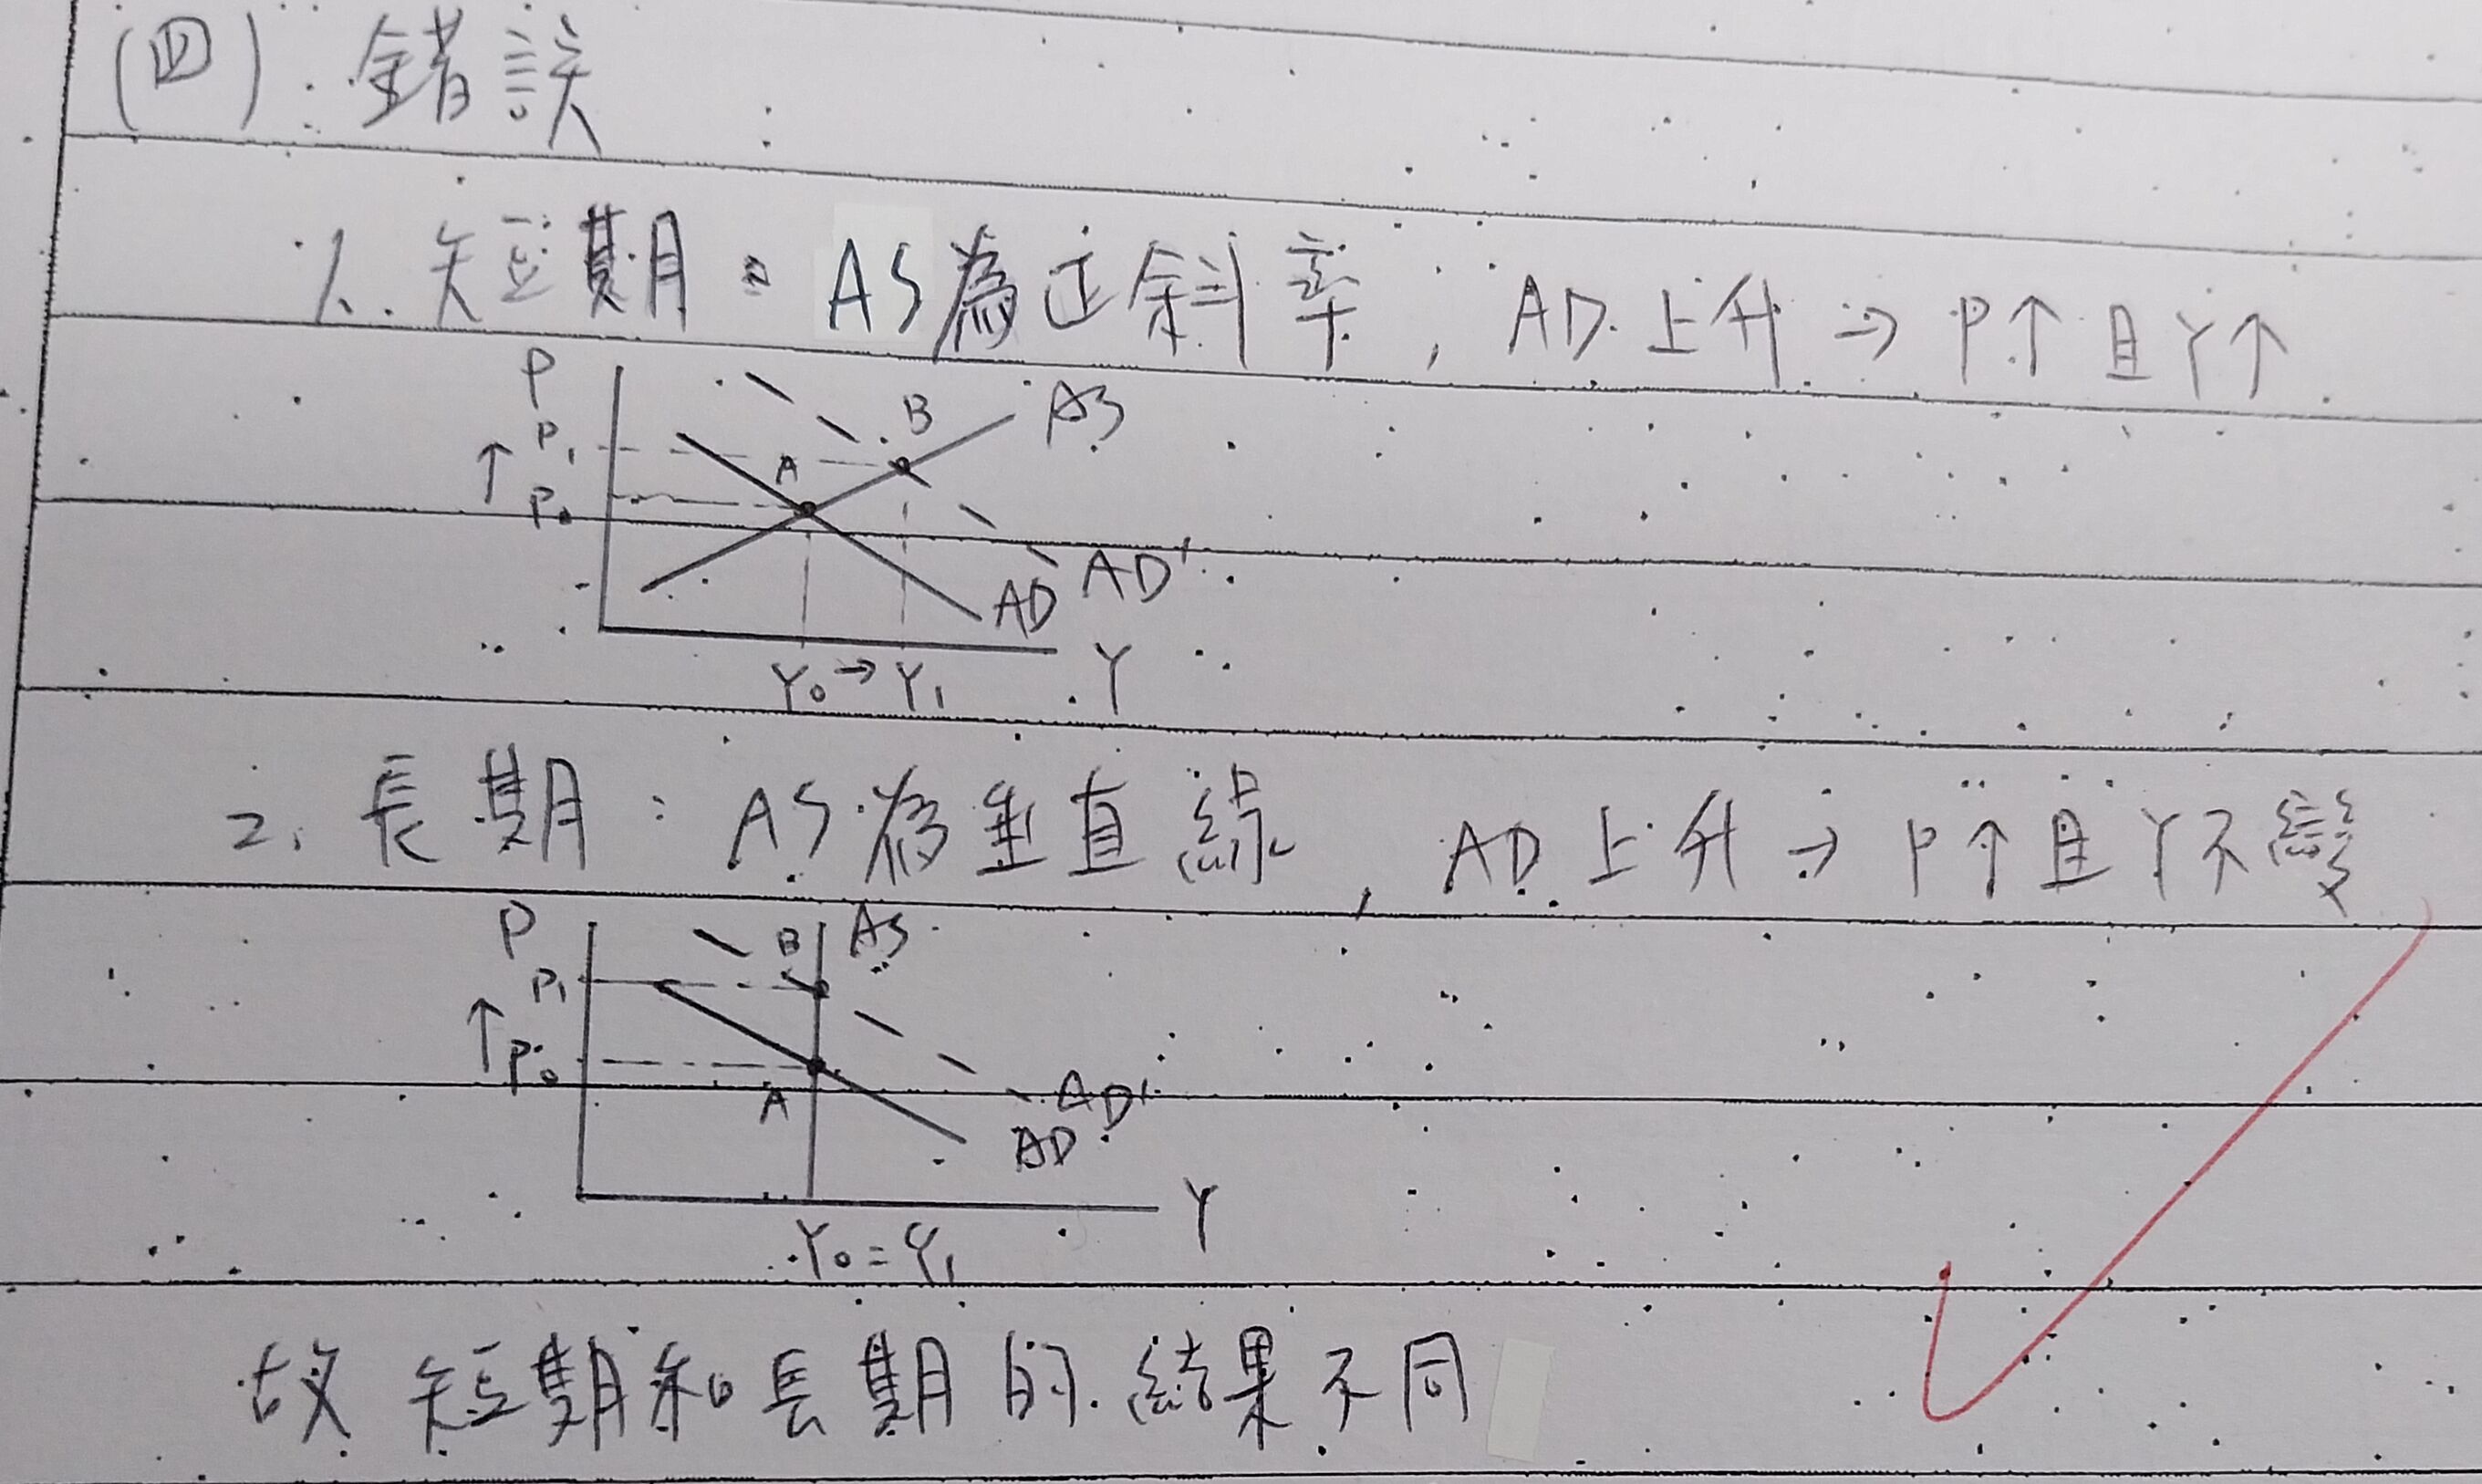 (四):錯誤
1.短期：AS為正斜率，AD上升→P↑且Y↑
P
B
AS
P₁
A
↑
P₀
AD'
AD
Y₀→Y₁
Y
2.長期：AS為垂直線，AD上升→P↑且Y不變
P
B
AS
P₁
↑
P₀
A
AD'
AD
Y
Y₀=Y₁
故短期和長期的結果不同